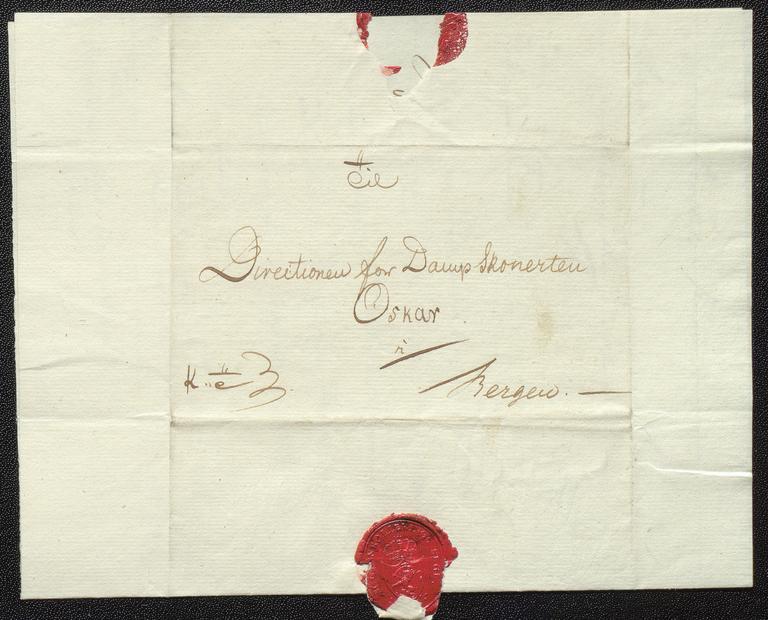 Til
Directionen for Damp Skonerten
Oskar
i
Bergen. —